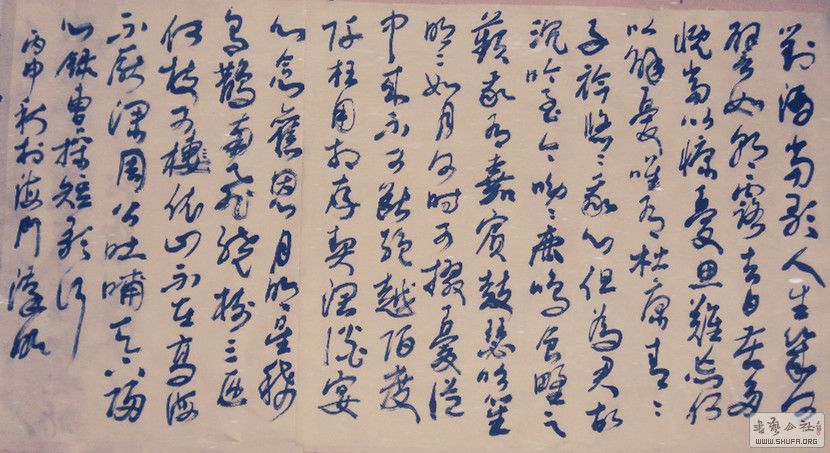 對酒當歌人生幾何
譬如朝露去日苦多
慨當以慷憂思難忘何
以解憂唯有杜康青々
子衿悠々我心但為君故
沉吟至今呦々鹿鳴食野之
蘋我有嘉賓鼓瑟吹笙
明々如月何時可掇憂從
中來不可斷絕越陌度
阡枉用相存契闊談宴
心念舊恩月明星稀
烏鵲南飛繞樹三匝
何枝可棲依山不在高海
不厭深周公吐哺天下歸
心錄曹操短歌行
丙申秋於海門
書藝公社
WWW.SHUFA.ORG